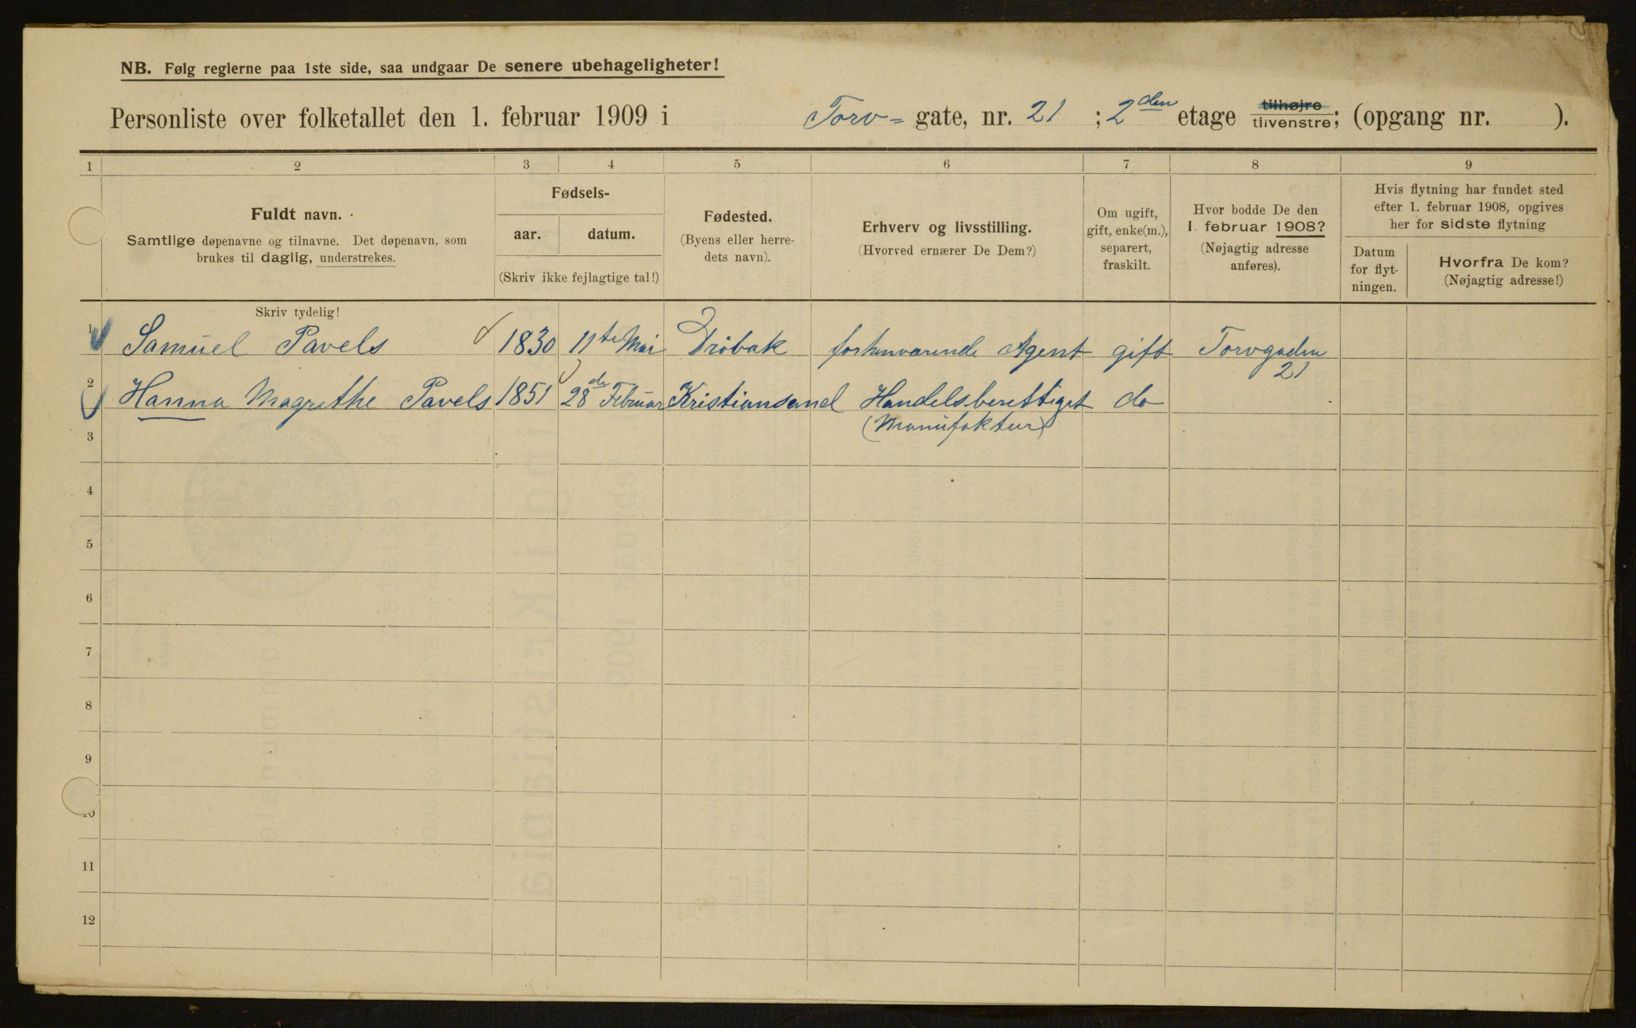 NB. Følg reglerne paa 1ste side, saa undgaar De senere ubehageligheter!
Personliste over folketallet den 1. februar 1909 i Torv= gate, nr. 21 ; 2den etage tilhøjre tilvenstre; (opgang nr. ).
1 2 3 4 5 6 7 8 9
Fuldt navn.
Samtlige døpenavne og tilnavne. Det døpenavn, som
brukes til daglig, understrekes.
Fødsels-
aar. datum.
(Skriv ikke fejlagtige tal!)
Fødested.
(Byens eller herre-
dets navn).
Erhverv og livsstilling.
(Hvorved ernærer De Dem?)
Om ugift,
gift, enke(m.),
separert,
fraskilt.
Hvor bodde De den
1. februar 1908?
(Nøjagtig adresse
anføres).
Hvis flytning har fundet sted
efter 1. februar 1908, opgives
her for sidste flytning
Datum
for flyt-
ningen.
Hvorfra De kom?
(Nøjagtig adresse!)
Skriv tydelig!
1 Samuel Pavels 1830 11te Mai Dröbak forhenværende Agent gift Torvgaden
21
2 Hanna Magrethe Pavels 1851 28de Februar Kristiansand Handelsberettiget do
(Manufaktur)
3
4
5
6
7
8
9
10
11
12